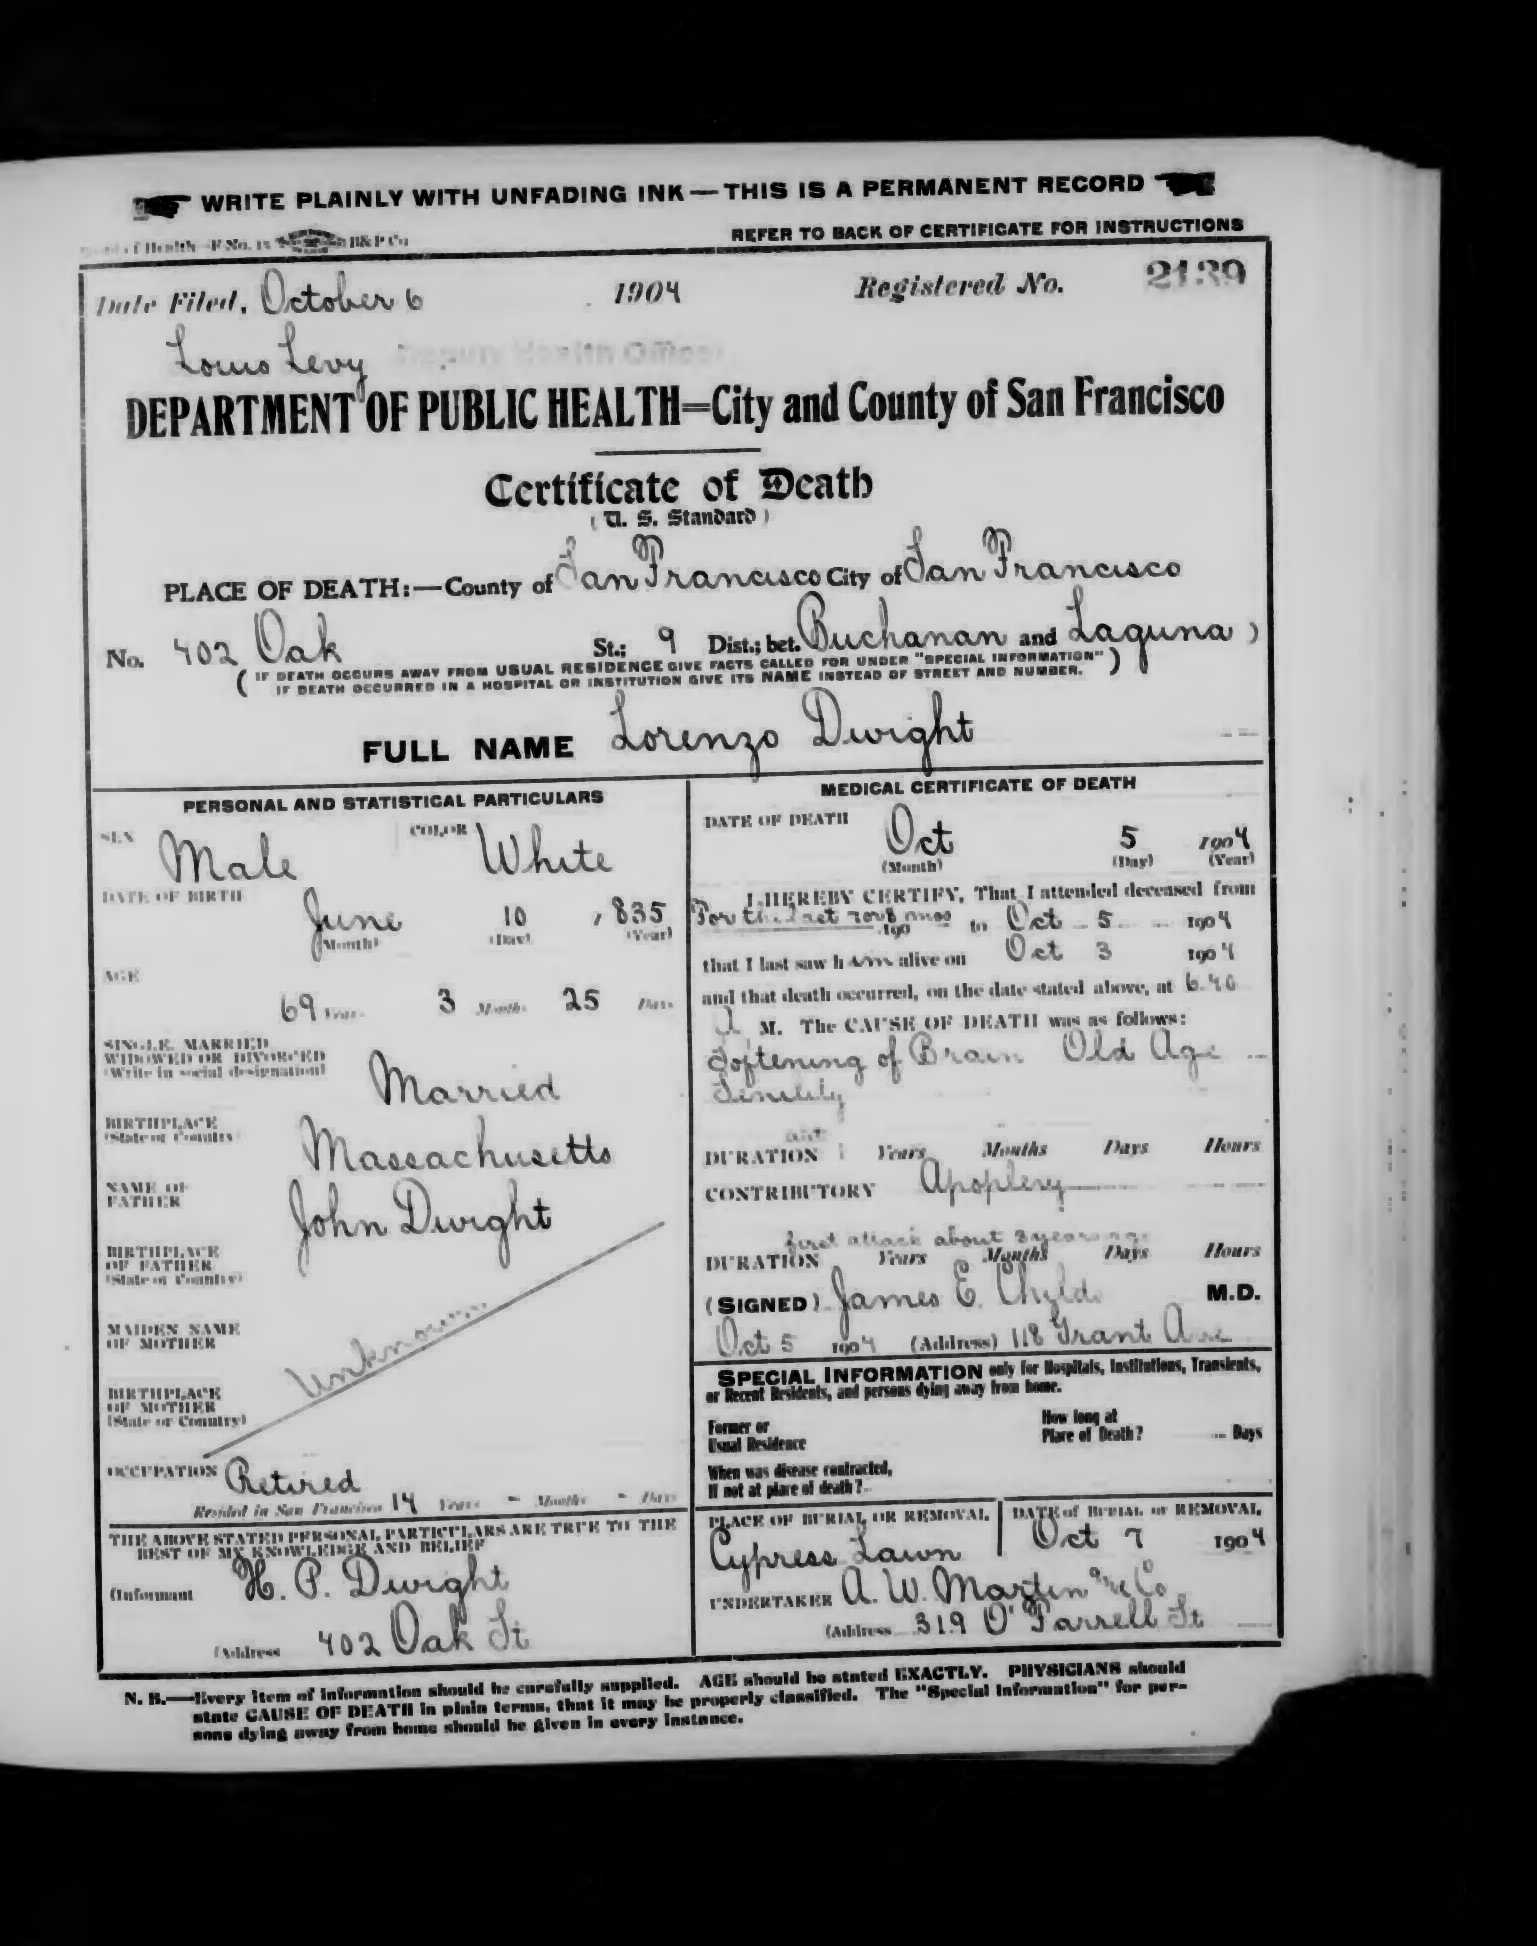 WRITE PLAINLY WITH UNFADING INK — THIS IS A PERMANENT RECORD
of Health—F No. B&P Co
REFER TO BACK OF CERTIFICATE FOR INSTRUCTIONS
Date Filed, October 6 1904 Registered No. 2139
Louis Levy Deputy Health Officer
DEPARTMENT OF PUBLIC HEALTH=City and County of San Francisco
Certificate of Death
(U. S. Standard)
PLACE OF DEATH:—County of San Francisco City of San Francisco
No. 402 Oak St.; 9 Dist.; bet. Buchanan and Laguna )
( IF DEATH OCCURS AWAY FROM USUAL RESIDENCE GIVE FACTS CALLED FOR UNDER "SPECIAL INFORMATION" )
IF DEATH OCCURRED IN A HOSPITAL OR INSTITUTION GIVE ITS NAME INSTEAD OF STREET AND NUMBER.
FULL NAME Lorenzo Dwight
PERSONAL AND STATISTICAL PARTICULARS
SEX Male COLOR White
DATE OF BIRTH
June 10 , 835
(Month) (Day) (Year)
AGE
69 Years 3 Months 25 Days
SINGLE, MARRIED
WIDOWED OR DIVORCED
(Write in social designation)
Married
BIRTHPLACE
(State or Country)
Massachusetts
NAME OF
FATHER
John Dwight
BIRTHPLACE
OF FATHER
(State or Country)
MAIDEN NAME
OF MOTHER
Unknown
BIRTHPLACE
OF MOTHER
(State or Country)
OCCUPATION Retired
Resided in San Francisco 14 Years - Months - Days
THE ABOVE STATED PERSONAL PARTICULARS ARE TRUE TO THE
BEST OF MY KNOWLEDGE AND BELIEF
(Informant H. P. Dwight
(Address 402 Oak St
MEDICAL CERTIFICATE OF DEATH
DATE OF DEATH
Oct 5 1904
(Month) (Day) (Year)
I HEREBY CERTIFY, That I attended deceased from
For the last 7 or 8 mos 190 to Oct 5 1904
that I last saw him alive on Oct 3 1904
and that death occurred, on the date stated above, at 6.40
A M. The CAUSE OF DEATH was as follows:
Softening of Brain Old Age
Senility
DURATION Years Months Days Hours
CONTRIBUTORY Apoplexy
first attack about 3 years ago
DURATION Years Months Days Hours
(SIGNED) James E. M.D.
Oct 5 1904 (Address) 118 Grant Ave
SPECIAL INFORMATION only for Hospitals, Institutions, Transients,
or Recent Residents, and persons dying away from home.
Former or
Usual Residence
How long at
Place of Death? Days
When was disease contracted,
If not at place of death?
PLACE OF BURIAL OR REMOVAL
Cypress Lawn
DATE of BURIAL or REMOVAL
Oct 7 1904
UNDERTAKER A. W. Martin & Co
(Address 319 O'Farrell St
N. B.—Every item of information should be carefully supplied. AGE should be stated EXACTLY. PHYSICIANS should
state CAUSE OF DEATH in plain terms, that it may be properly classified. The "Special Information" for per-
sons dying away from home should be given in every instance.